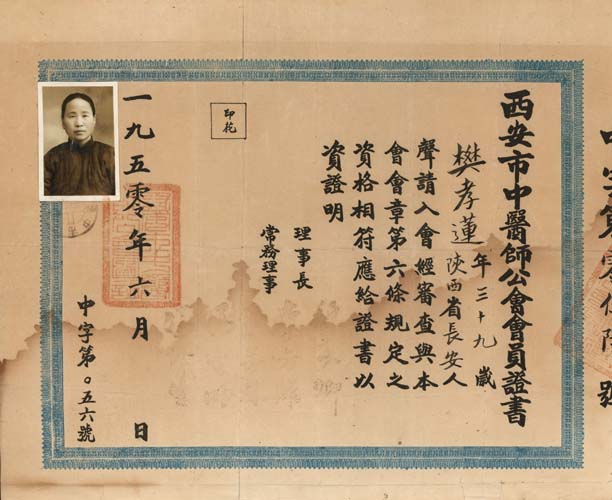 西安市中醫師公會會員證書
樊孝蓮年三十九歲
陝西省長安人
聲請入會經審查與本
會會章第六條規定之
資格相符應給證書以
資證明
理事長
常務理事
印花
一九五零年六月 日
中字第〇五六號